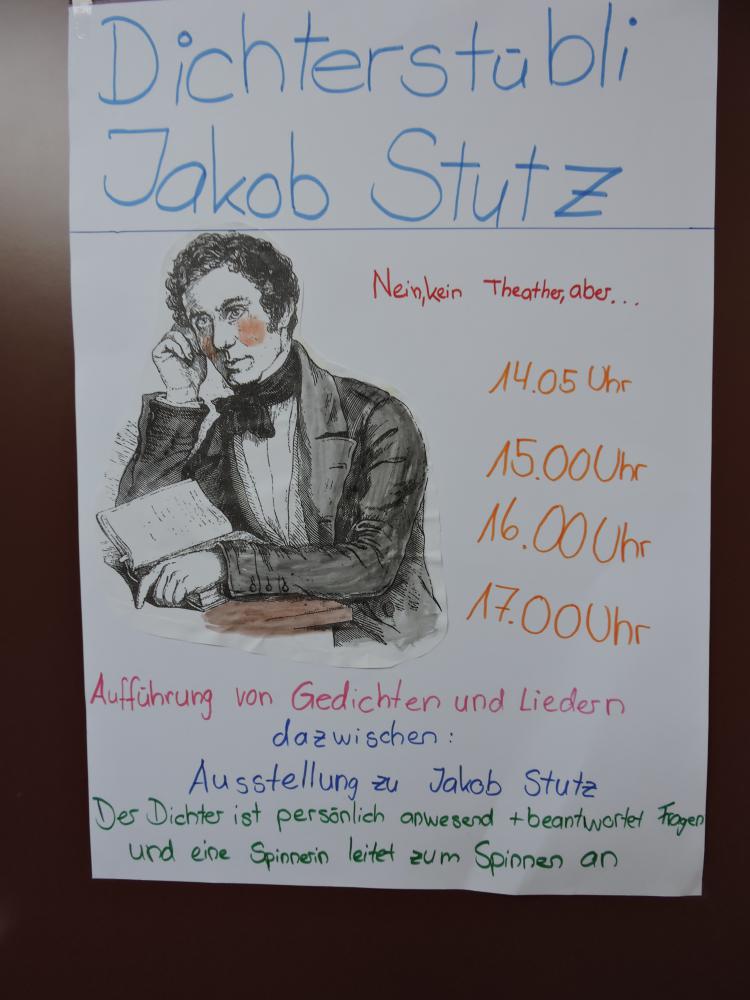 Dichterstübli
Jakob Stutz
Nein, kein Theather, aber...
14.05 Uhr
15.00 Uhr
16.00 Uhr
17.00 Uhr
Aufführung von Gedichten und Liedern
dazwischen:
Ausstellung zu Jakob Stutz
Der Dichter ist persönlich anwesend + beantwortet Fragen
und eine Spinnerin leitet zum Spinnen an